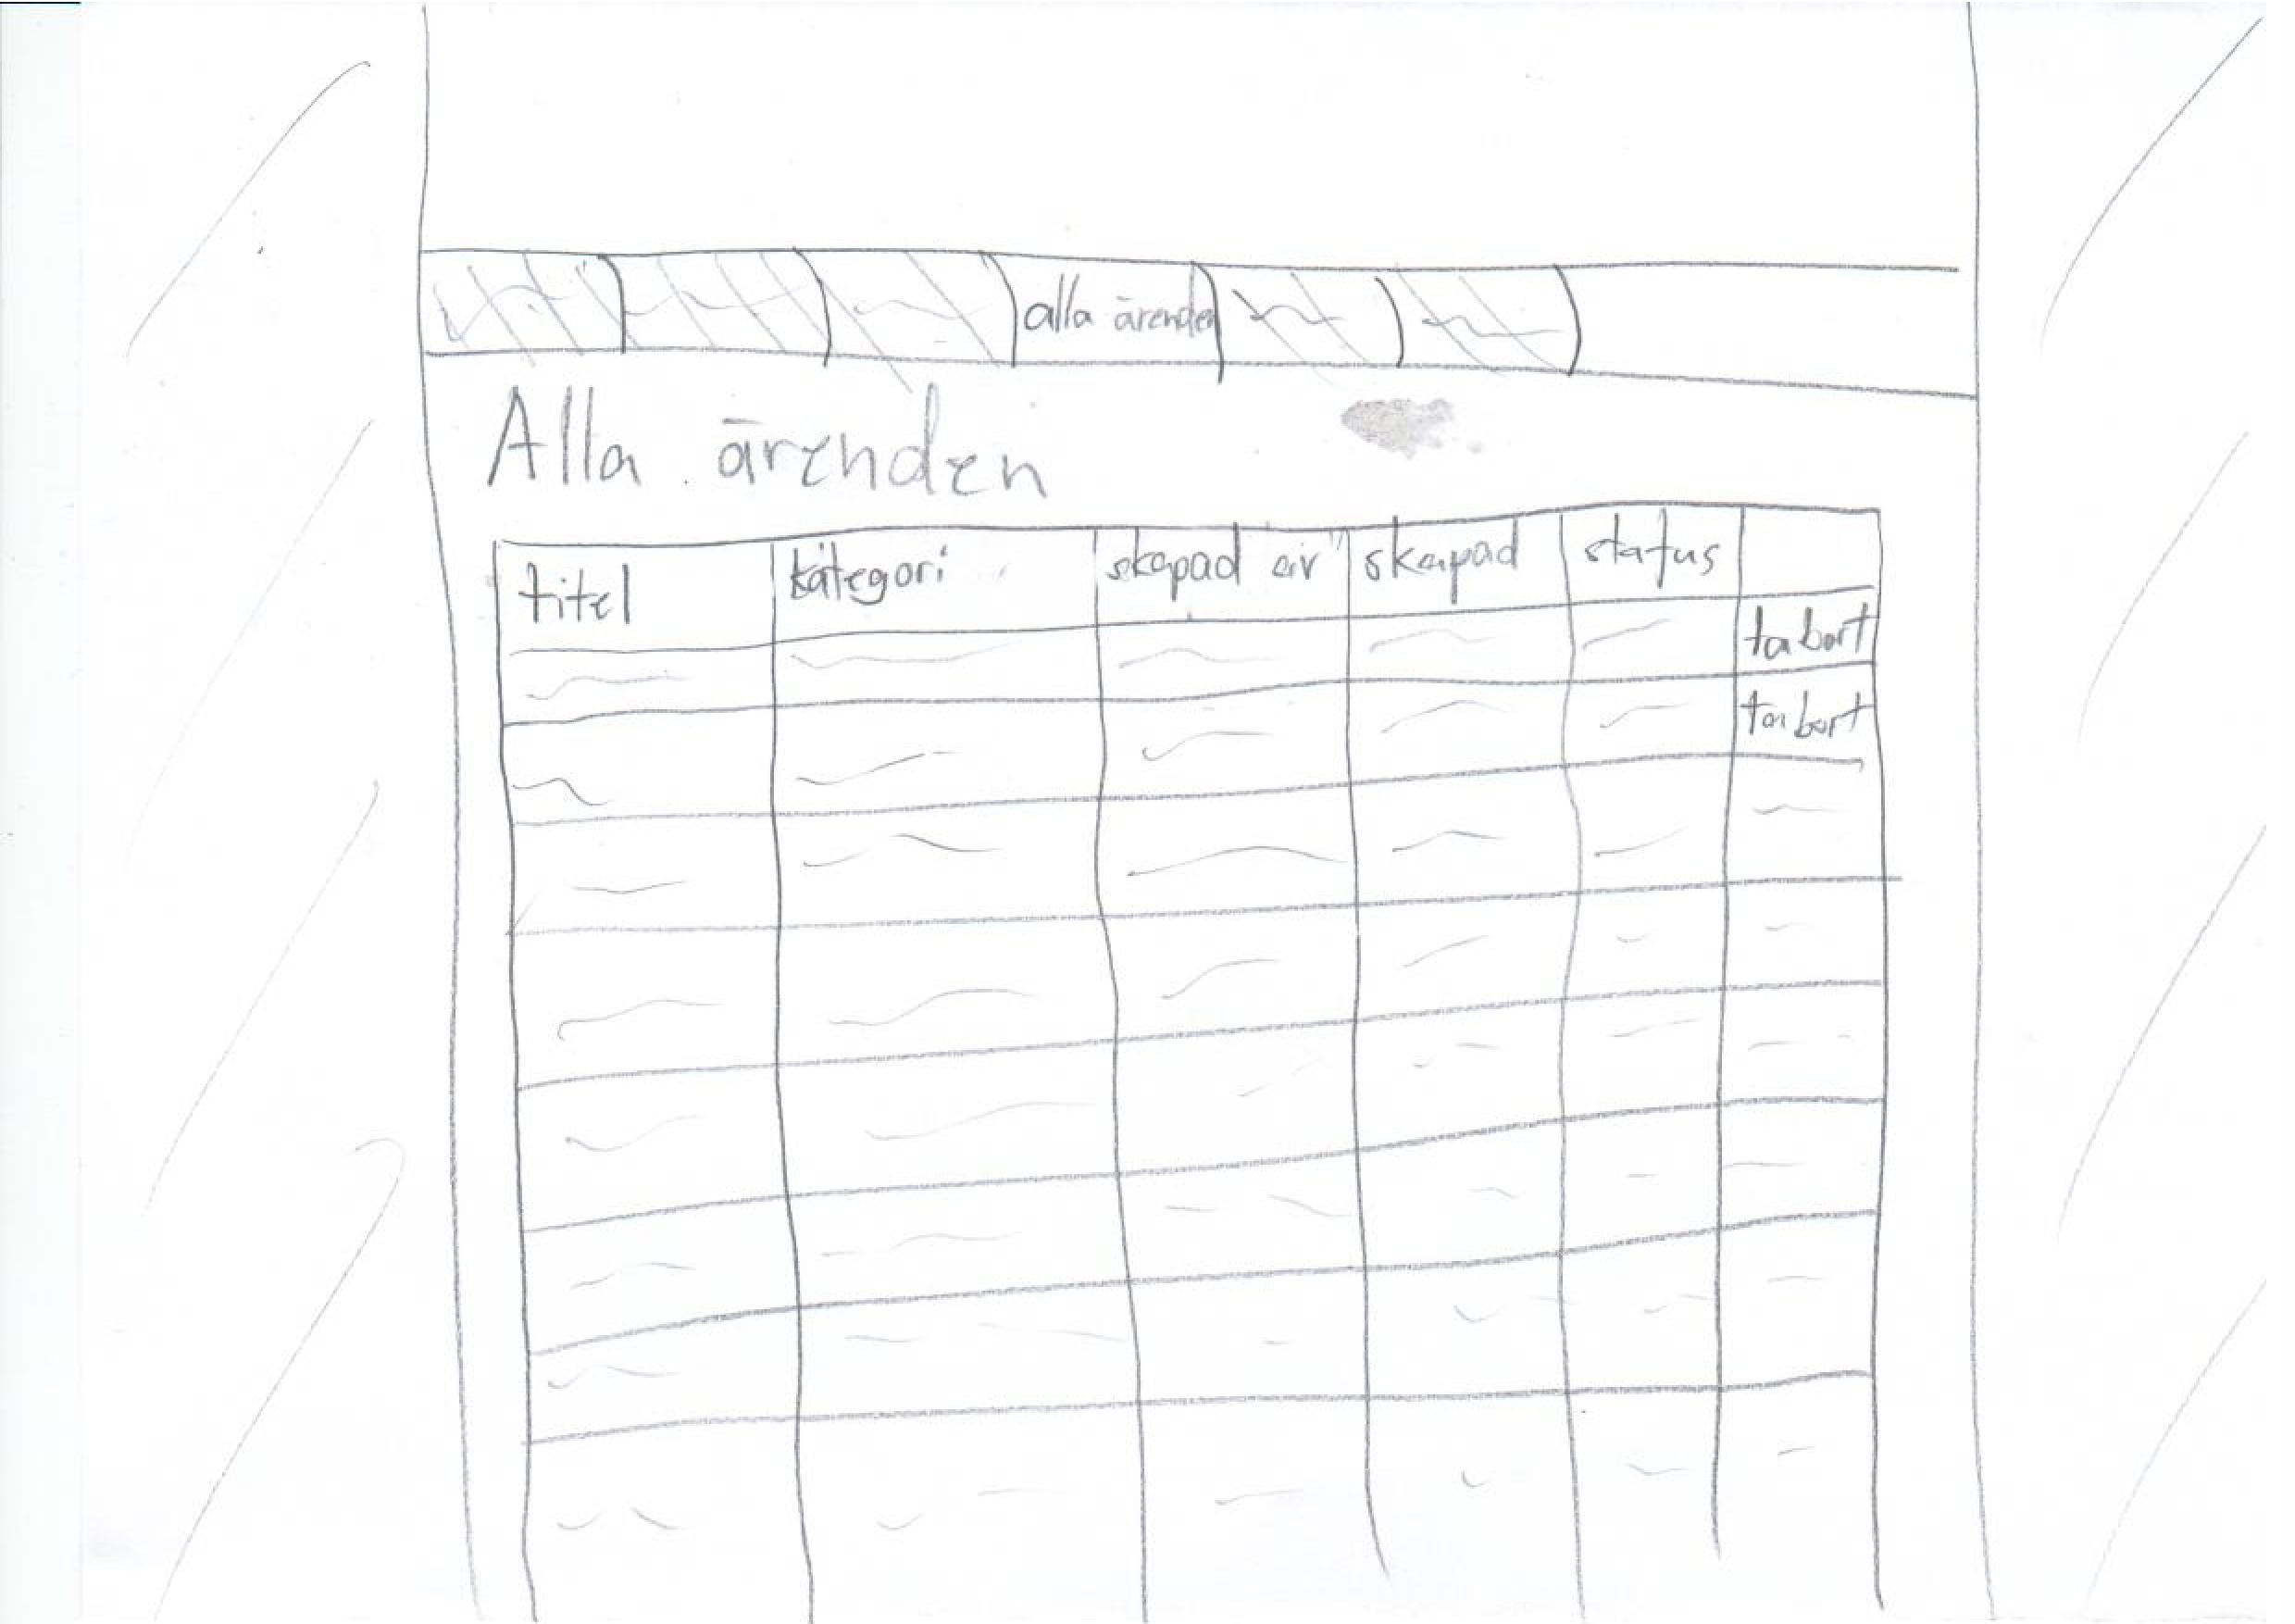 alla ärenden
Alla ärenden
titel kategori skapad av skapad status
ta bort
ta bort